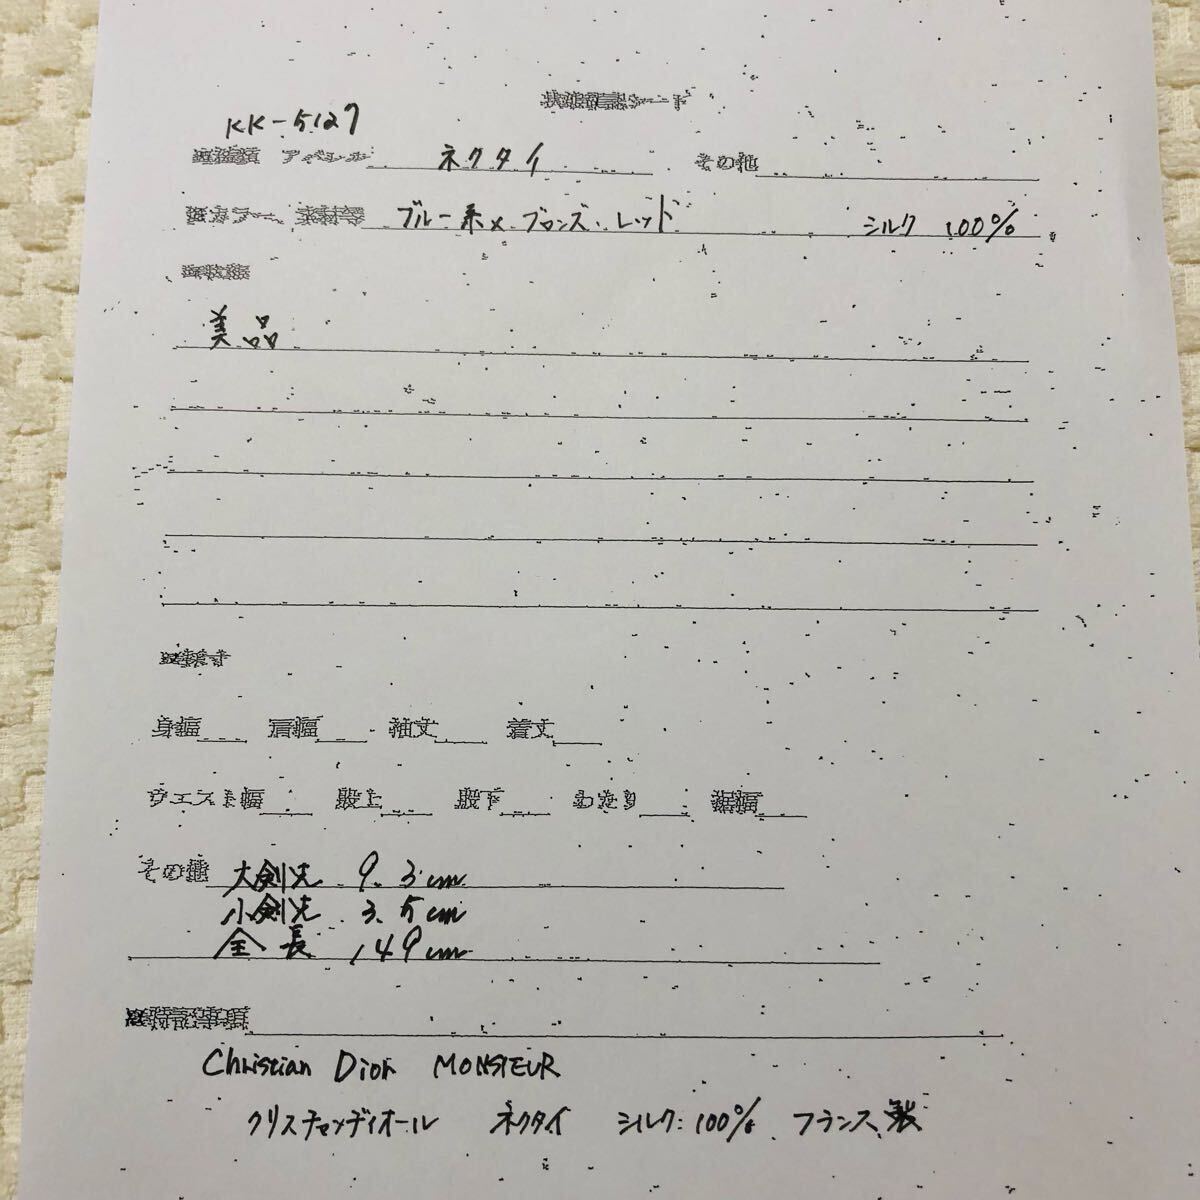 状態確認シート
KK-5127
アパレル ネクタイ その他
カラー、素材等 ブルー系×ブロンズ、レッド シルク 100%
美品
身幅 肩幅 袖丈 着丈
ウエスト幅 股上 股下 わたり 裾幅
その他 大剣先 9.3cm
小剣先 3.5cm
全長 149cm
特記事項
Christian Dior MONSIEUR
クリスチャンディオール ネクタイ シルク:100% フランス製